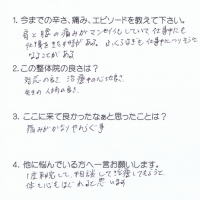 1. 今までの辛さ、痛み、エピソードを教えて下さい。
肩と腰の痛みがマンセイ化していて仕事にも
仕事をする時がある
なることがある
2. この整体院の良さは?
対応の良さ 治療中の心地良さ
先生の人柄の良さ
3. ここに来て良かったなぁと思ったことは?
痛みがかなりやわらぐ事
4. 他に悩んでいる方へ一言お願いします。
1度来院して、相談して治療してもらうと
体も心もほぐれると思います